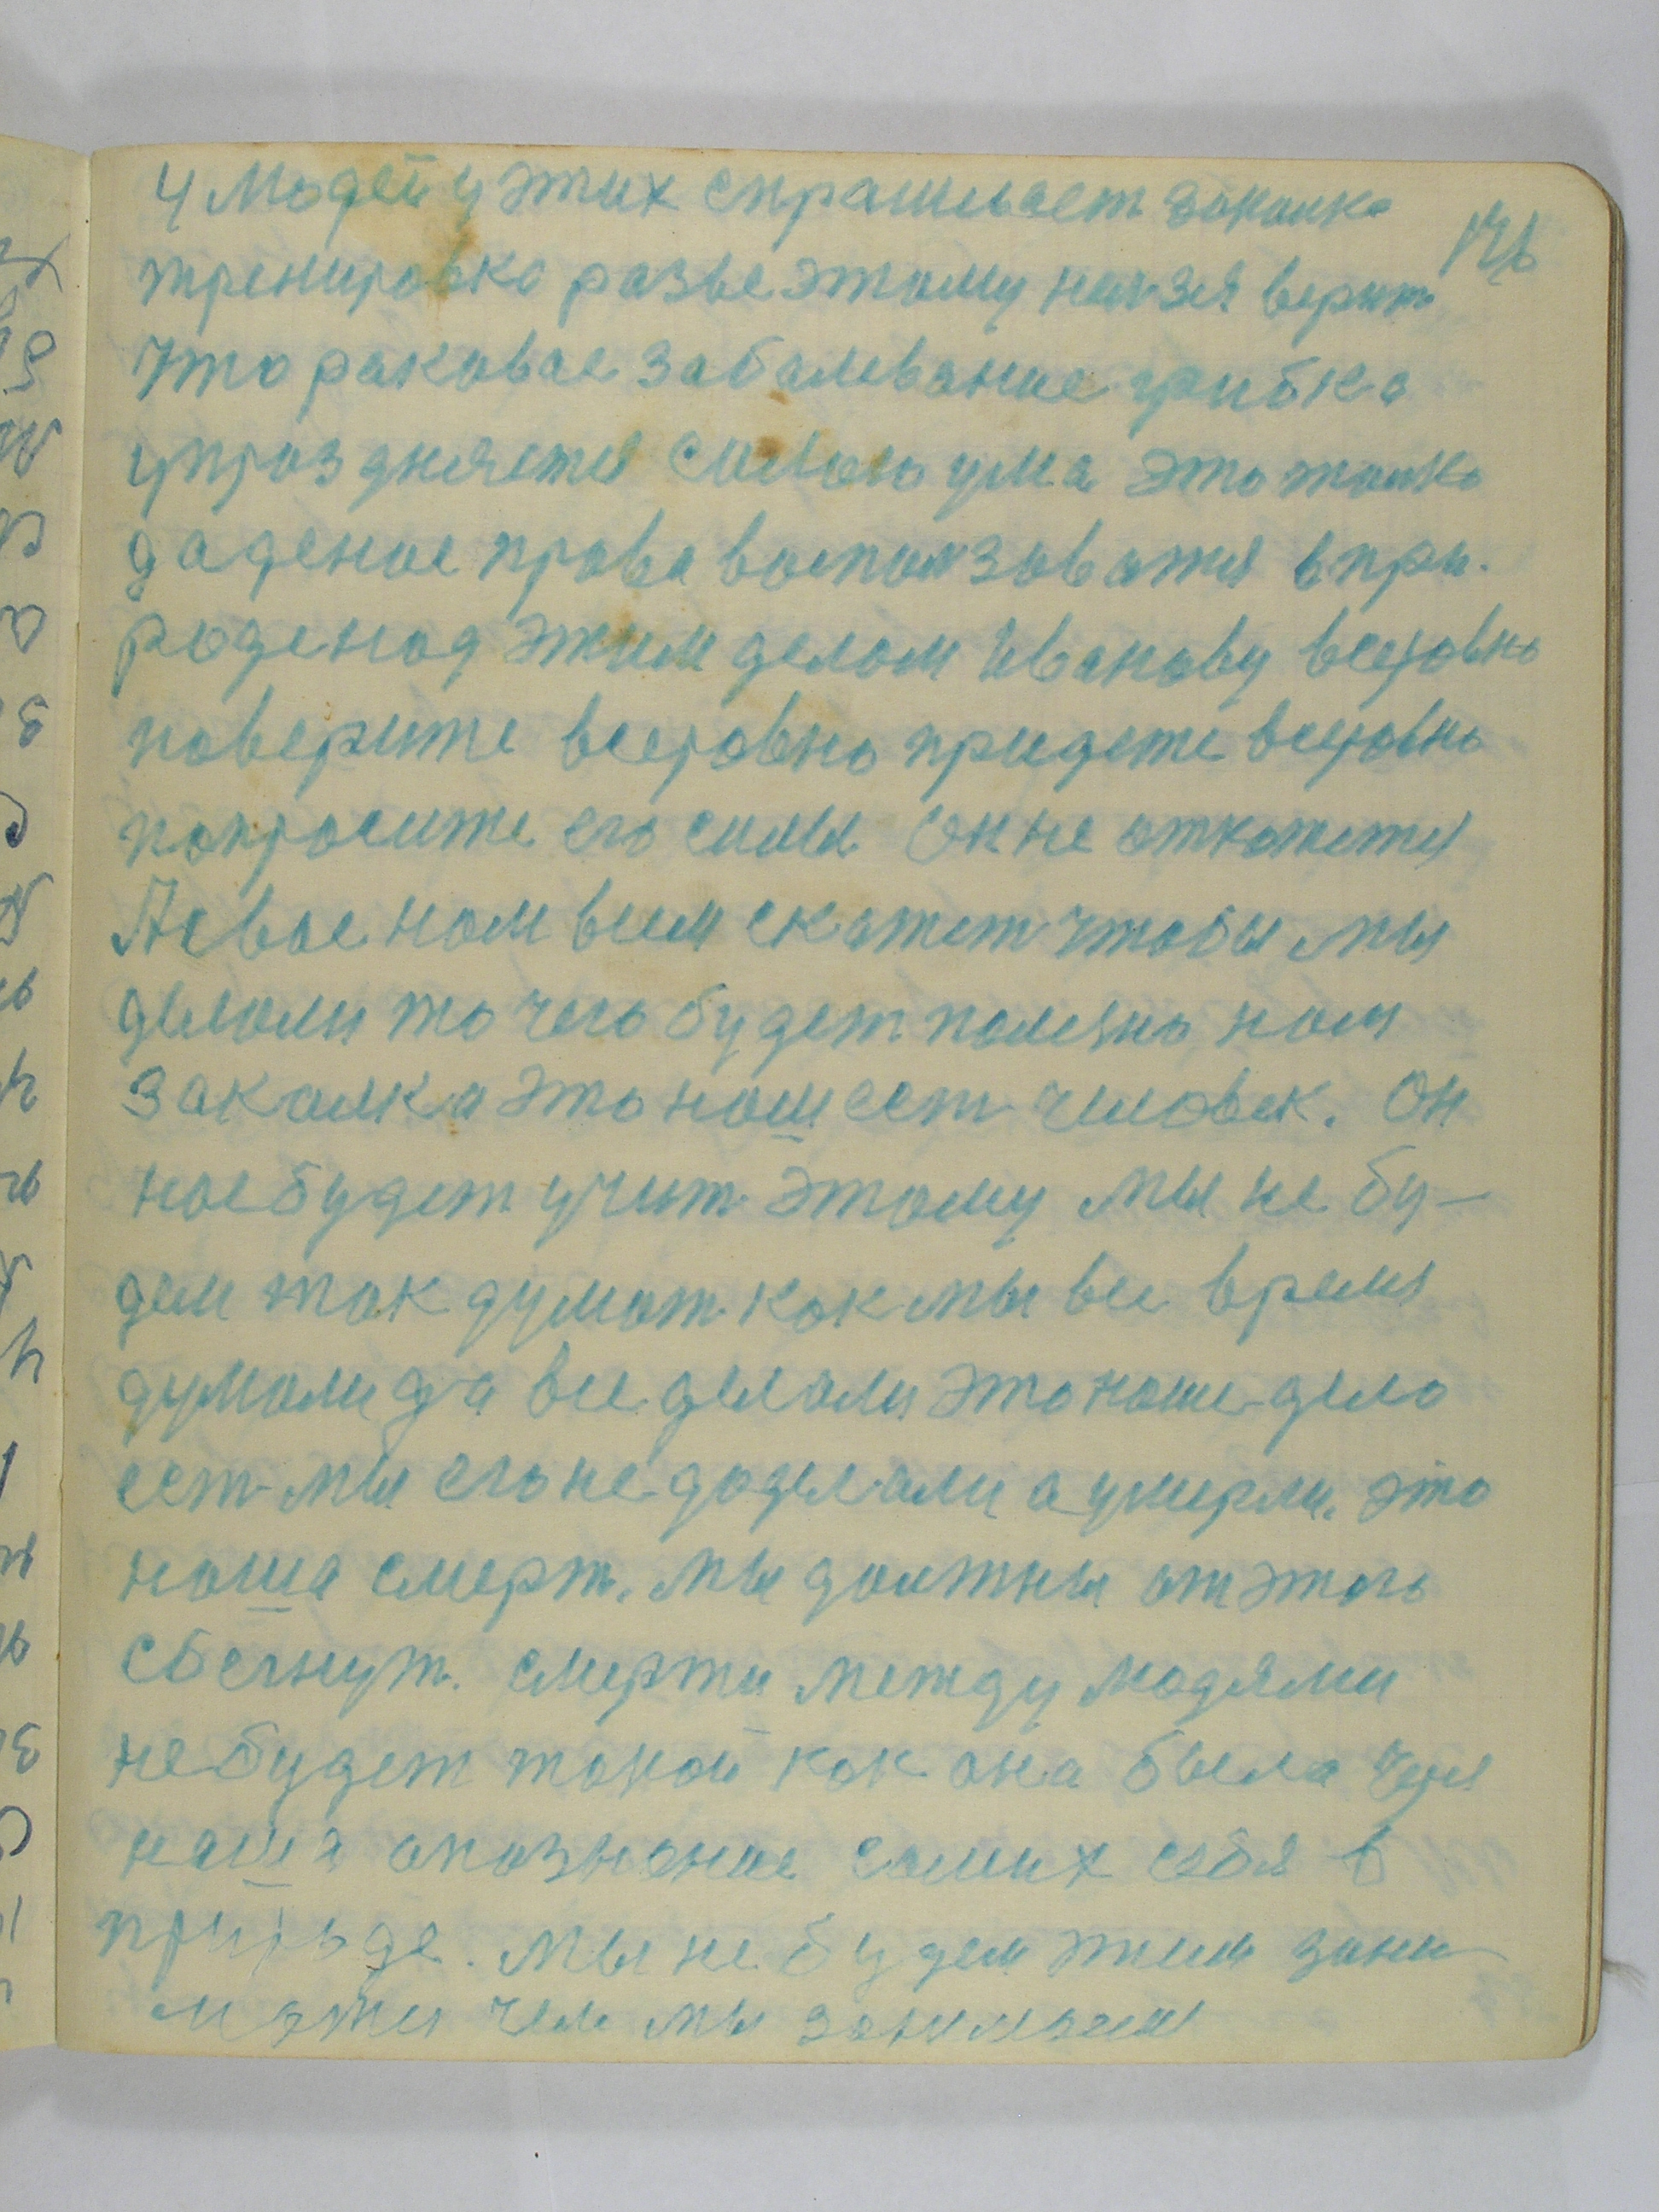 у людей у этих спрашивает закалка
126
тренировка разве этому нельзя верит
что раковае забалевание грибка
упраздняется силою ума это толко
даденое права воспользоватся в при-
роде над этим делом Иванову всеровно
поверите всеровно придете всеровно
попросите его силы Он не откажется
А свое нам всем скажет чтобы мы
делали то чего будет полезно нам
закалка это наш ест человек. Он
нас будет учит этому мы не бу-
дем так думат как мы все время
думали да все делали это наше дело
ест мы его не доделали а умерли. это
наша смерт. мы должны от этого
сбегнут. смерти между людями
не будет такой как она была чрез
наша опознание самих себя в
природе. мы не будем этим зани
матся чем мы занимаем